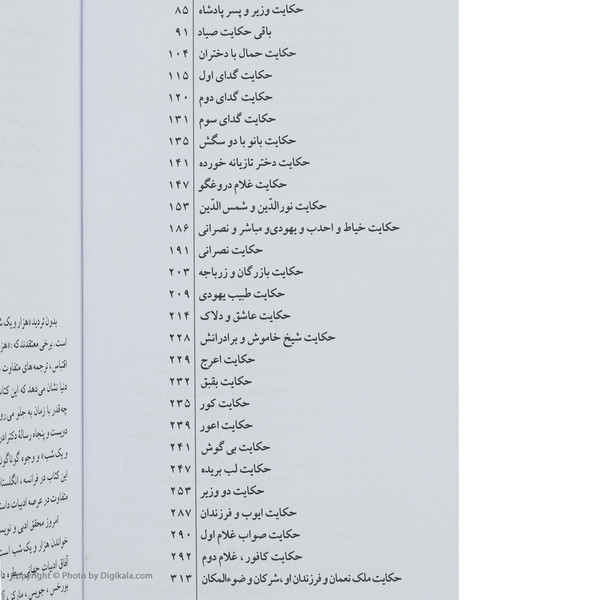 حکایت وزیر و پسر پادشاه ۸۵
باقی حکایت صیاد ۹۱
حکایت حمال با دختران ۱۰۴
حکایت گدای اول ۱۱۵
حکایت گدای دوم ۱۲۰
حکایت گدای سوم ۱۳۱
حکایت بانو با دو سگش ۱۳۵
حکایت دختر تازیانه خورده ۱۴۱
حکایت غلام دروغگو ۱۴۷
حکایت نورالدّین و شمس الدّین ۱۵۳
حکایت خیاط و احدب و یهودی و مباشر و نصرانی ۱۸۶
حکایت نصرانی ۱۹۱
حکایت بازرگان و زرباجه ۲۰۳
حکایت طبیب یهودی ۲۰۹
حکایت عاشق و دلاک ۲۱۴
حکایت شیخ خاموش و برادرانش ۲۲۸
حکایت اعرج ۲۲۹
حکایت بقبق ۲۳۲
حکایت کور ۲۳۵
حکایت اعور ۲۳۹
حکایت بی گوش ۲۴۱
حکایت لب بریده ۲۴۷
حکایت دو وزیر ۲۵۳
حکایت ایوب و فرزندان ۲۸۷
حکایت صواب غلام اول ۲۹۰
حکایت کافور ، غلام دوم ۲۹۲
حکایت ملک نعمان و فرزندان او ،شرکان و ضوءالمکان ۳۱۳
بدون تردید «هزار و یک
است. برخی معتقدند که : «هزار
اقتباس، ترجمه های متفاوت
دنیا نشان می دهد که این کتاب
چه قدر با زمان به جلو می رود
دویست و پنجاه رسالهٔ دکترا در
و یک شب» و وجوه گوناگون
این کتاب در فرانسه ، انگلستان
متفاوت در عرصه ادبیات
امروز محقق ادبی و
خواندن هزار و یک شب است
آفاق ادبیات جهانی سیطره
بورخس ، جویس ، مارکز ،
Copyright © Photo by Digikala.com